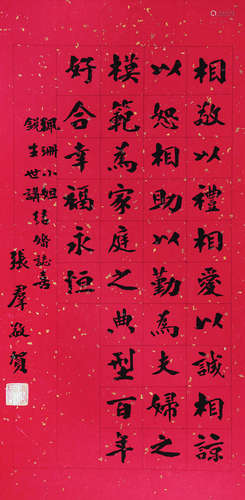 相敬以禮相愛以誠相諒
以恕相助以勤為夫婦之
模範為家庭之典型百年
好合幸福永恒
珊小姐結婚誌喜
銳生世講
張羣敬賀